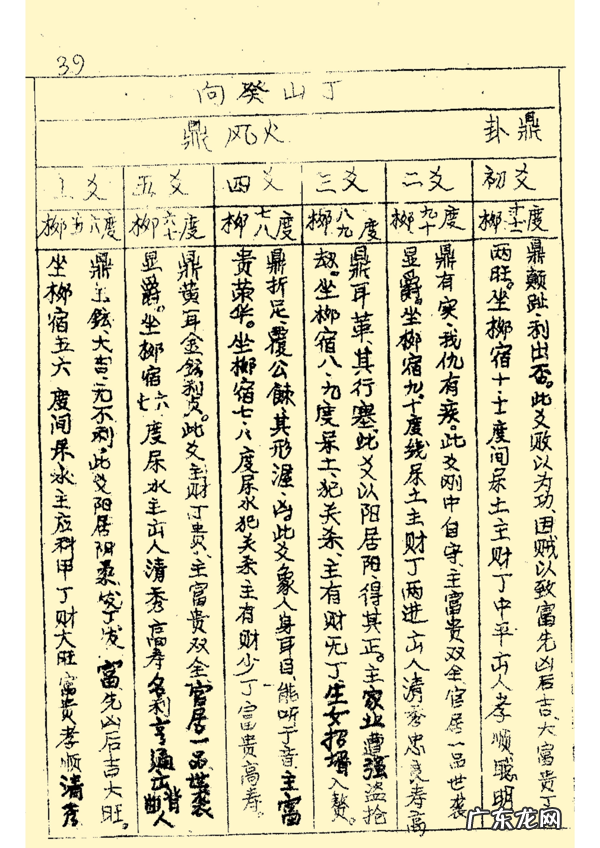 39
丁山癸向
鼎卦 火风鼎
初爻
柳十十一度
鼎颠趾，利出否。此爻败以为功，因贼以致富先凶后吉，大富贵丁
两旺。坐柳宿十、十一度间呆土主财丁中平出人孝顺聪明
二爻
柳九十度
鼎有实，我仇有疾。此爻刚中自守，主富贵双全，官居一品世袭
显爵。坐柳宿九、十度线呆土主财丁两进出人清秀忠良寿高
三爻
柳八九度
鼎耳革，其行塞，此爻以阳居阳，得其正。主家业遭强盗抢
劫。坐柳宿八、九度呆土、犯关杀、主有财无丁生女招婿入赘。
四爻
柳七八度
鼎折足，覆公餗其形渥，凶此爻象人身耳目，能听于音，主富
贵荣华。坐柳宿七、八度尿水犯关杀主有财少丁富贵高寿。
五爻
柳六七度
鼎黄耳金铉利贞。此爻主财丁贵、主富贵双全官居一品世袭
显爵。坐柳宿六七度尿水主出人清秀高寿名利亨通出曲背人
上爻
柳五六度
鼎玉铉、大吉，无不利，此爻阳居阴录，发丁发富先凶后吉大旺。
坐柳宿五六度间呆水主应科甲丁财大旺富贵孝顺清秀
广东龙网